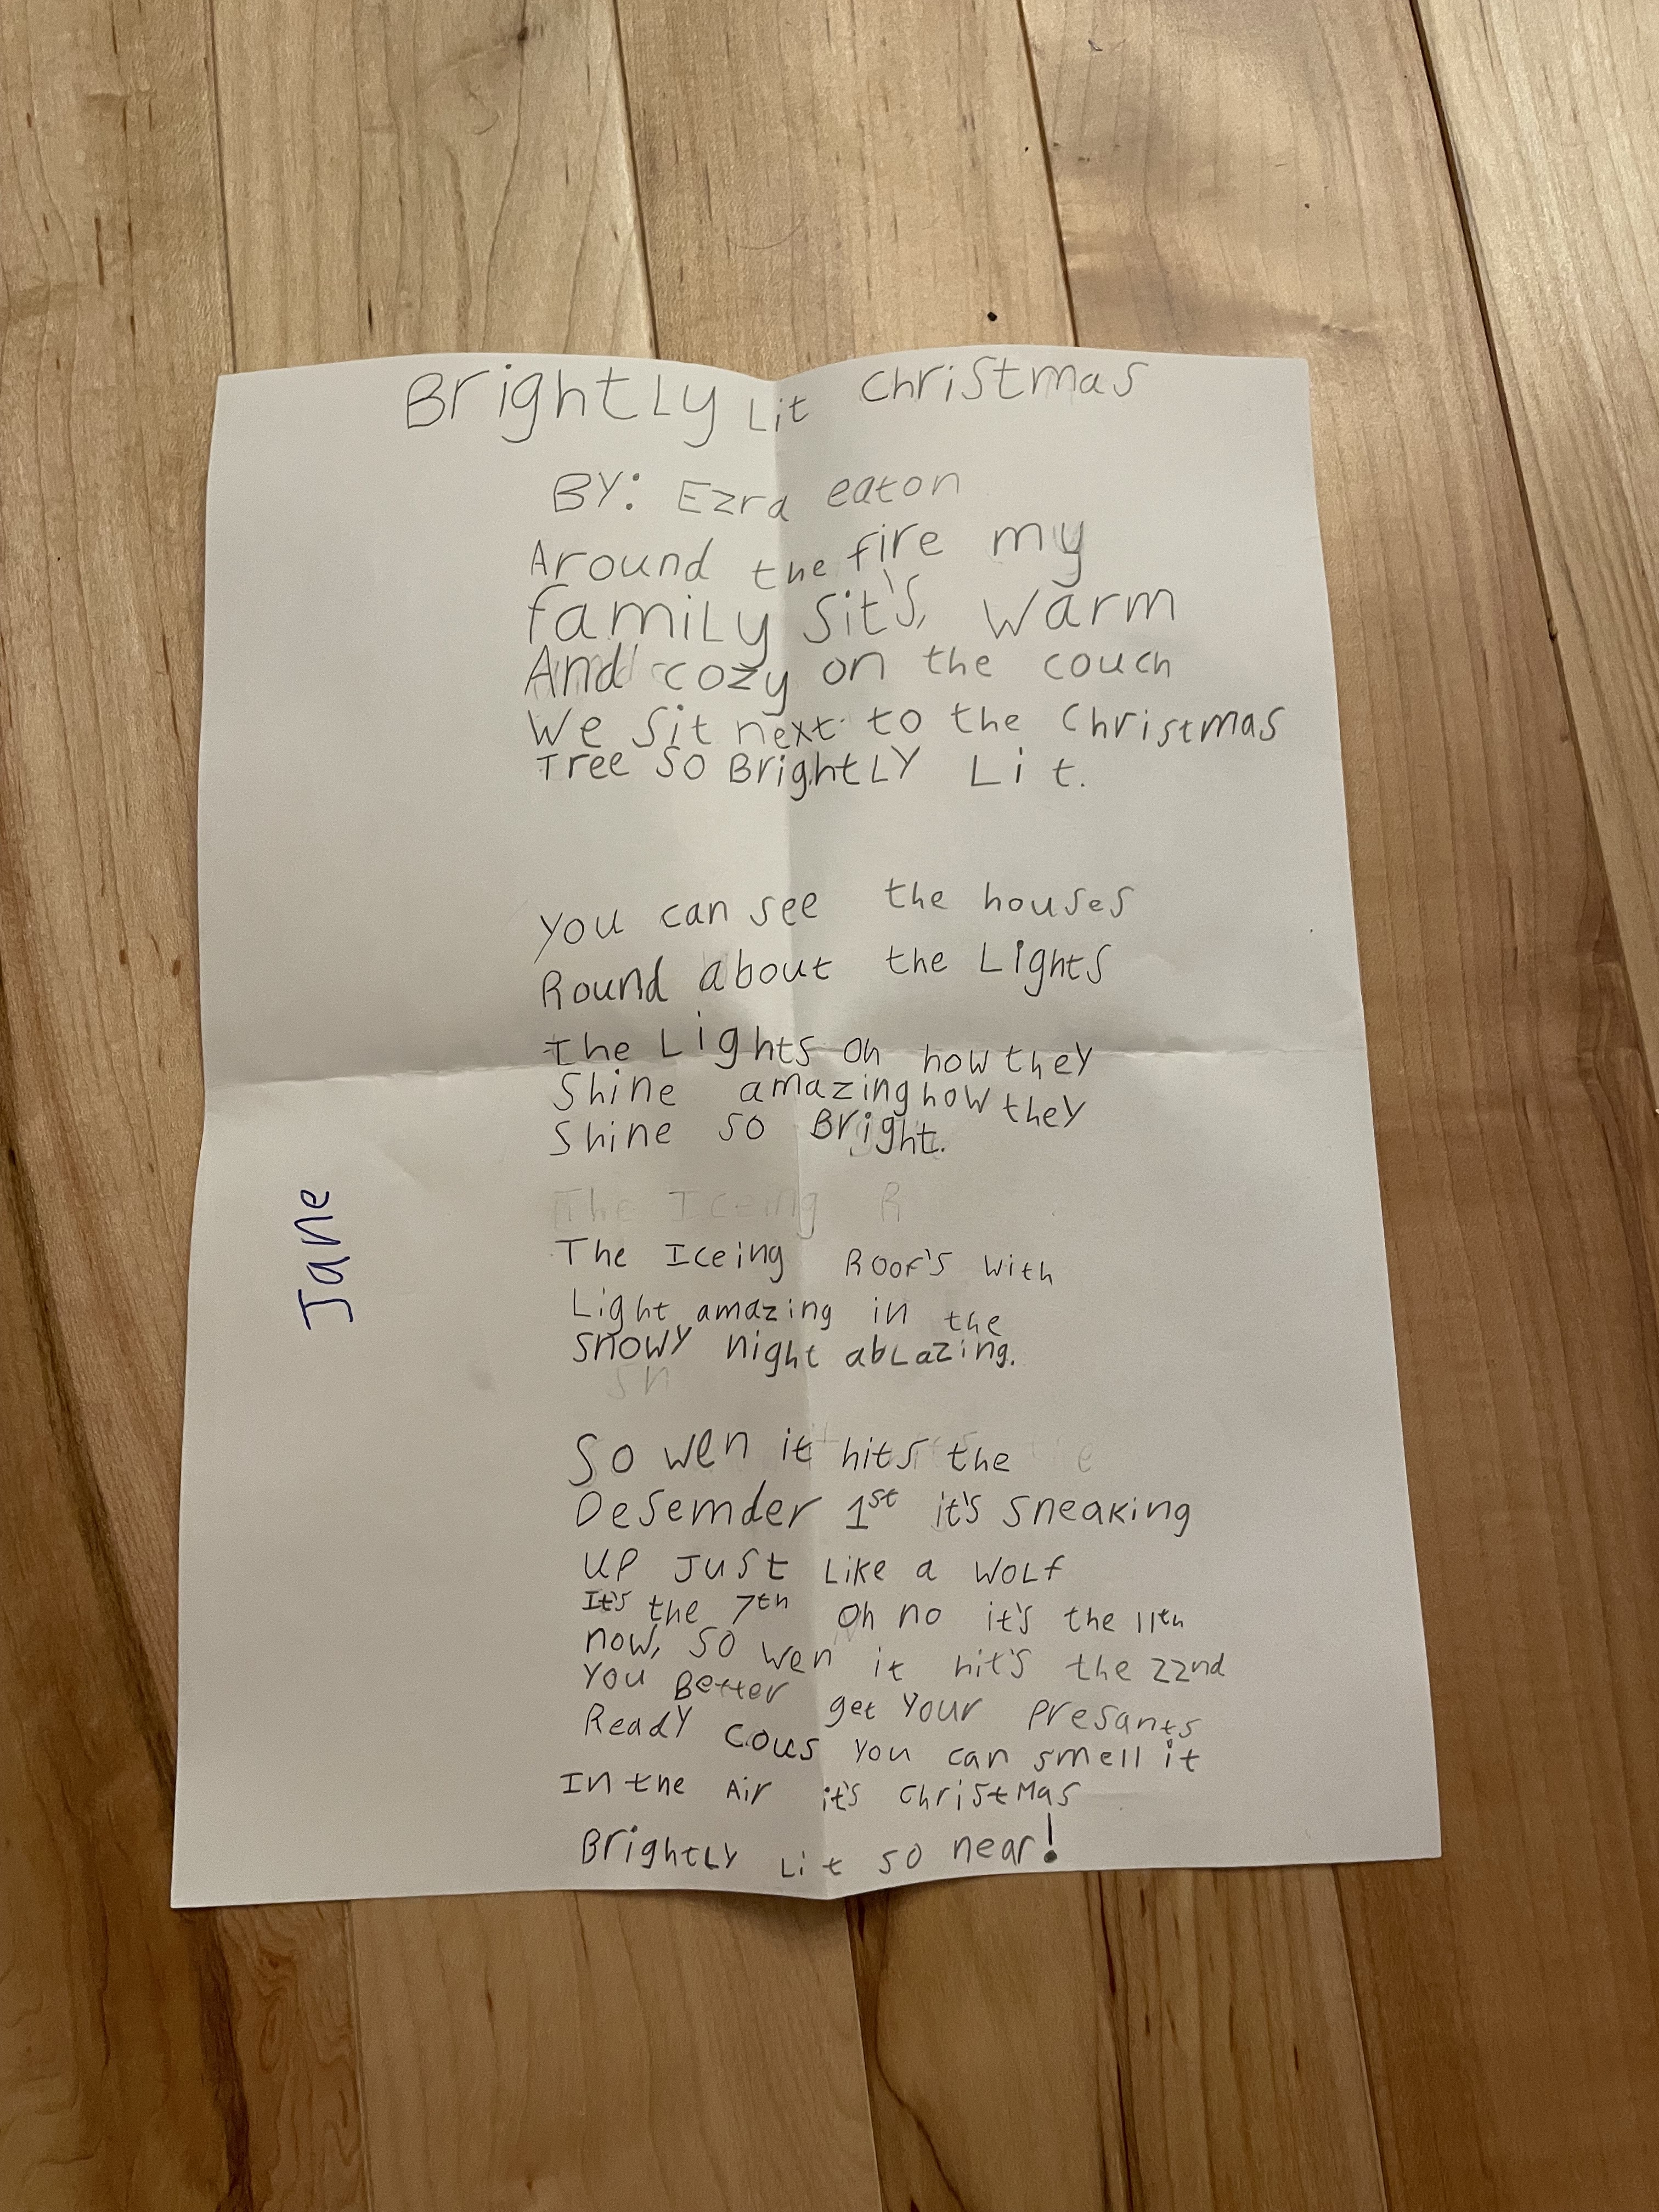 Brightly Lit Christmas
BY: Ezra eaton
Around the fire my
family sit's, warm
And cozy on the couch
We sit next to the Christmas
Tree so Brightly Lit.
you can see the houses
Round about the Lights
the Lights oh how they
Shine amazing how they
Shine so Bright.
The Iceing R
The Iceing Roof's with
Light amazing in the
snowy night ablazing.
sn
So wen it hits the
Desemder 1st it's sneaking
up just like a wolf
It's the 7th oh no it's the 11th
now, so wen it hit's the 22nd
you Better get your presants
Ready cous you can smell it
In the Air it's christmas
Brightly Lit so near!
Jane